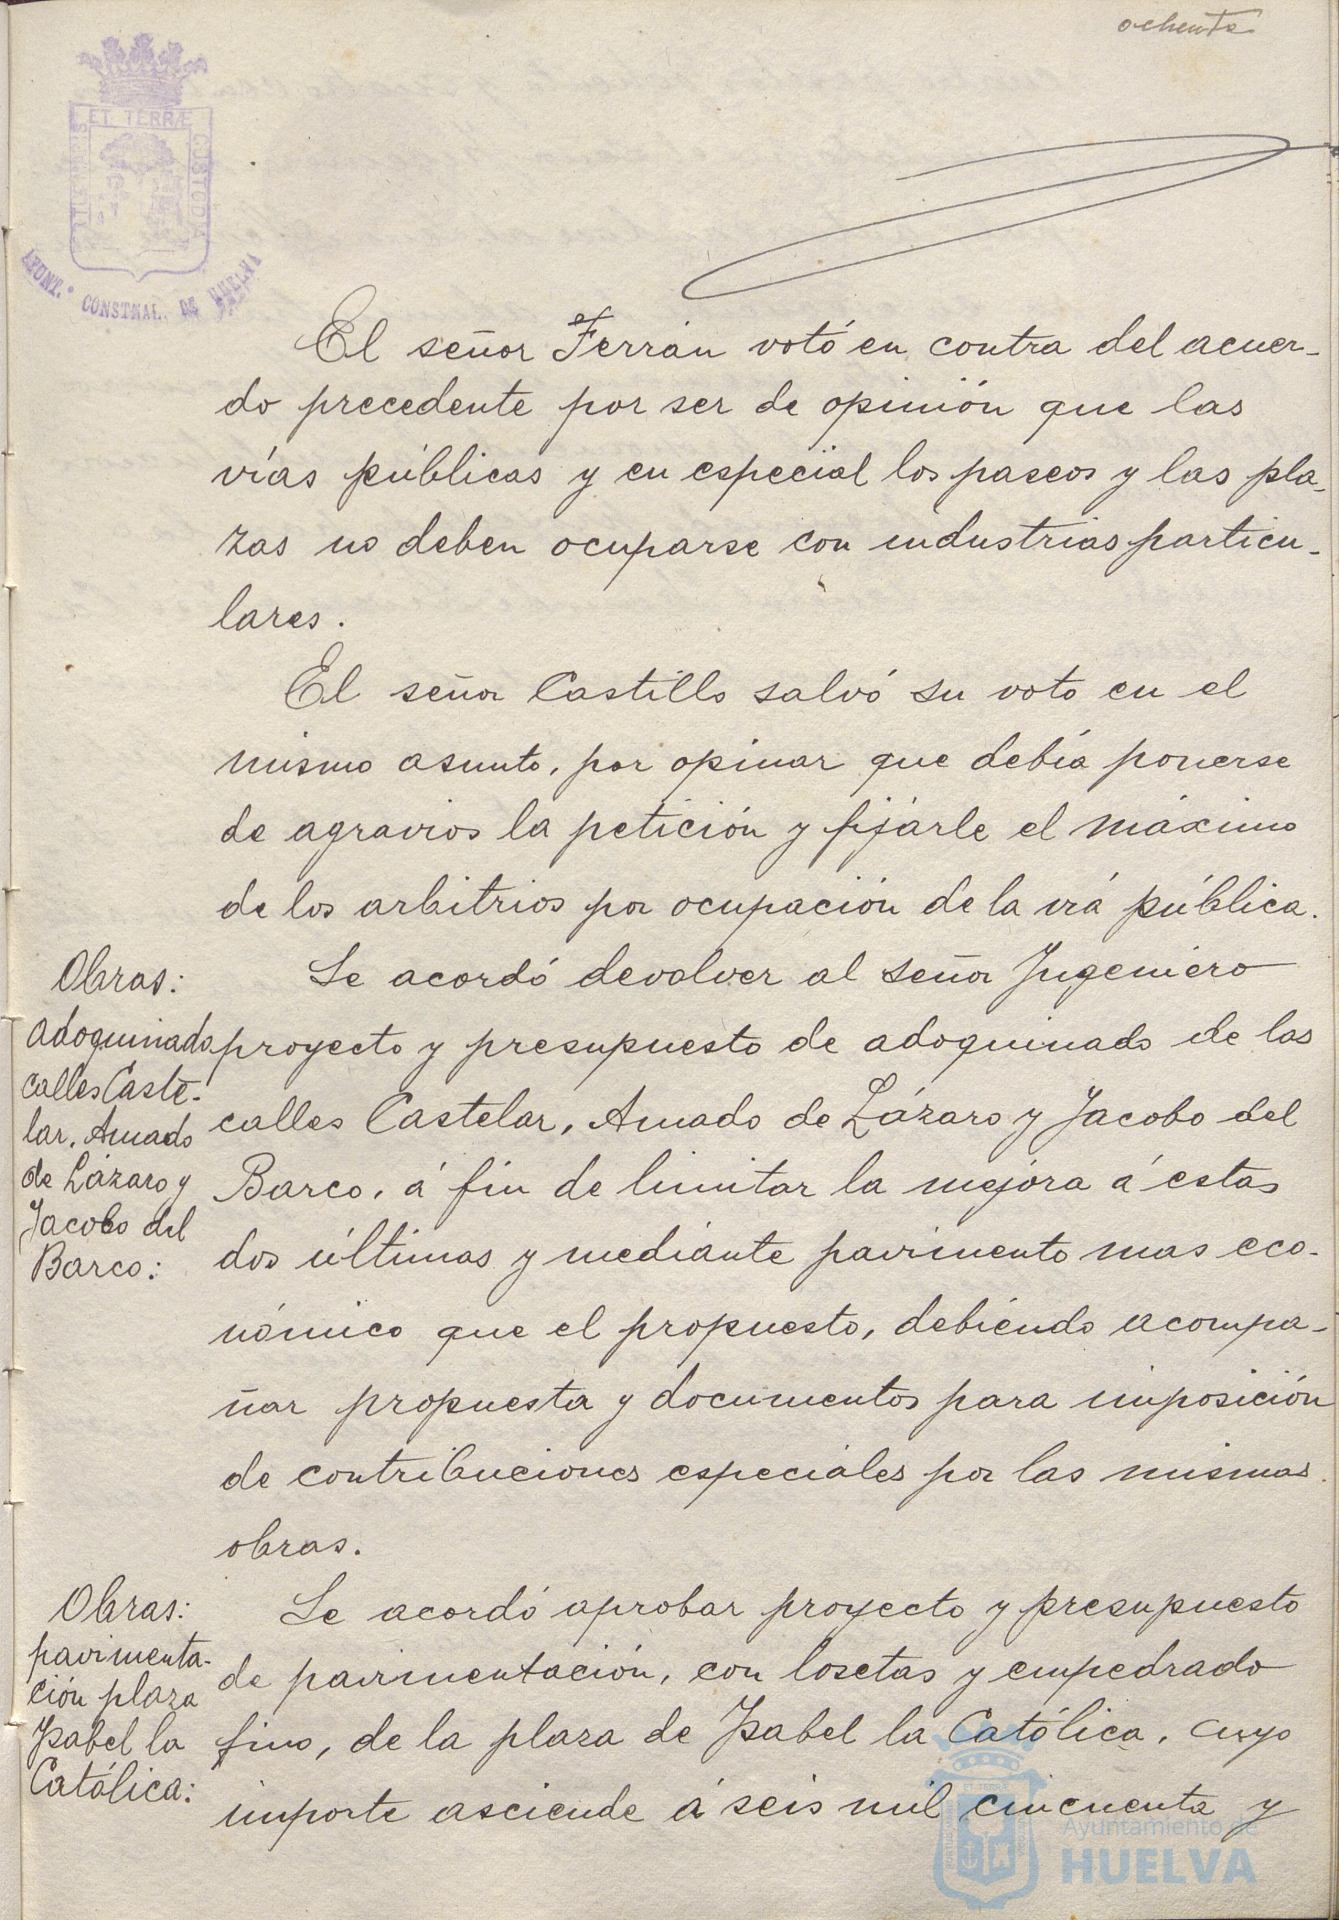 ochenta
ET TERRÆ
CUSTODIA
AYUNT.º CONSTNAL. DE HUELVA
El señor Ferrán votó en contra del acuer-
do precedente por ser de opinión que las
vías públicas y en especial los paseos y las pla-
zas no deben ocuparse con industrias particu-
lares.
El señor Castillo salvó su voto en el
mismo asunto, por opinar que debía ponerse
de agravios la petición y fijárle el máximo
de los arbitrios por ocupación de la viá pública.
Obras:
adoquinado
calles Caste-
lar, Amado
de Lázaro y
Jacobo del
Barco:
Se acordó devolver al señor Ingeniero
proyecto y presupuesto de adoquinado de las
calles Castelar, Amado de Lázaro y Jacobo del
Barco, á fin de limitar la mejora á estas
dos últimas y mediante pavimento mas eco-
nómico que el propuesto, debiendo acompa-
ñar propuesta y documentos para imposición
de contribuciones especiales por las mismas
obras.
Obras:
pavimenta-
ción plaza
Isabel la
Católica:
Se acordó aprobar proyecto y presupuesto
de pavimentación, con losetas y empedrado
fino, de la plaza de Isabel la Católica, cuyo
importe asciende á seis mil cincuenta y
Ayuntamiento de
HUELVA